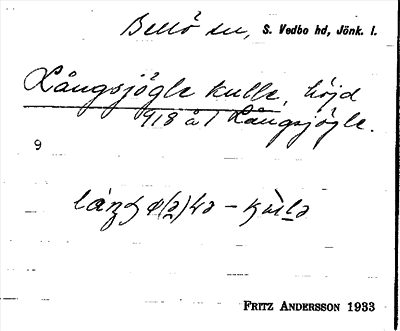 Bellö sn, S. Vedbo hd, Jönk. l.
Långsjögle kulle, höjd
918 å 1 Långsjögle.
9
FRITZ ANDERSSON 1933